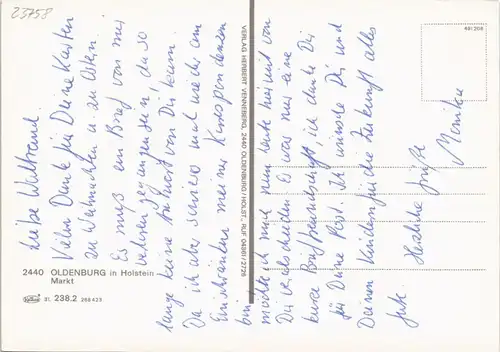 23758
Liebe Waltraud.
Vielen Dank für Deine Karten
zu Weihnachten u. zu Ostern.
Es muß ein Brief von mir
verloren gegangen sein, da so
lange keine Antwort von Dir kam.
Da ich aber sowieso am
Einschränken meiner Korrespondenzen
bin,
möchte ich mich nun heute hiermit von
Dir verabschieden. Es war nur eine
kurze Brieffreundschaft, ich danke Dir
für Deine Post. Ich wünsche Dir und
Deinen Kindern für die Zukunft alles
Gute. Herzliche Grüße
Monika
2440 OLDENBURG in Holstein
Markt
31. 238.2 268423
VERLAG HERBERT VENNEBERG, 2440 OLDENBURG / HOLST., RUF 04361/2728
491208